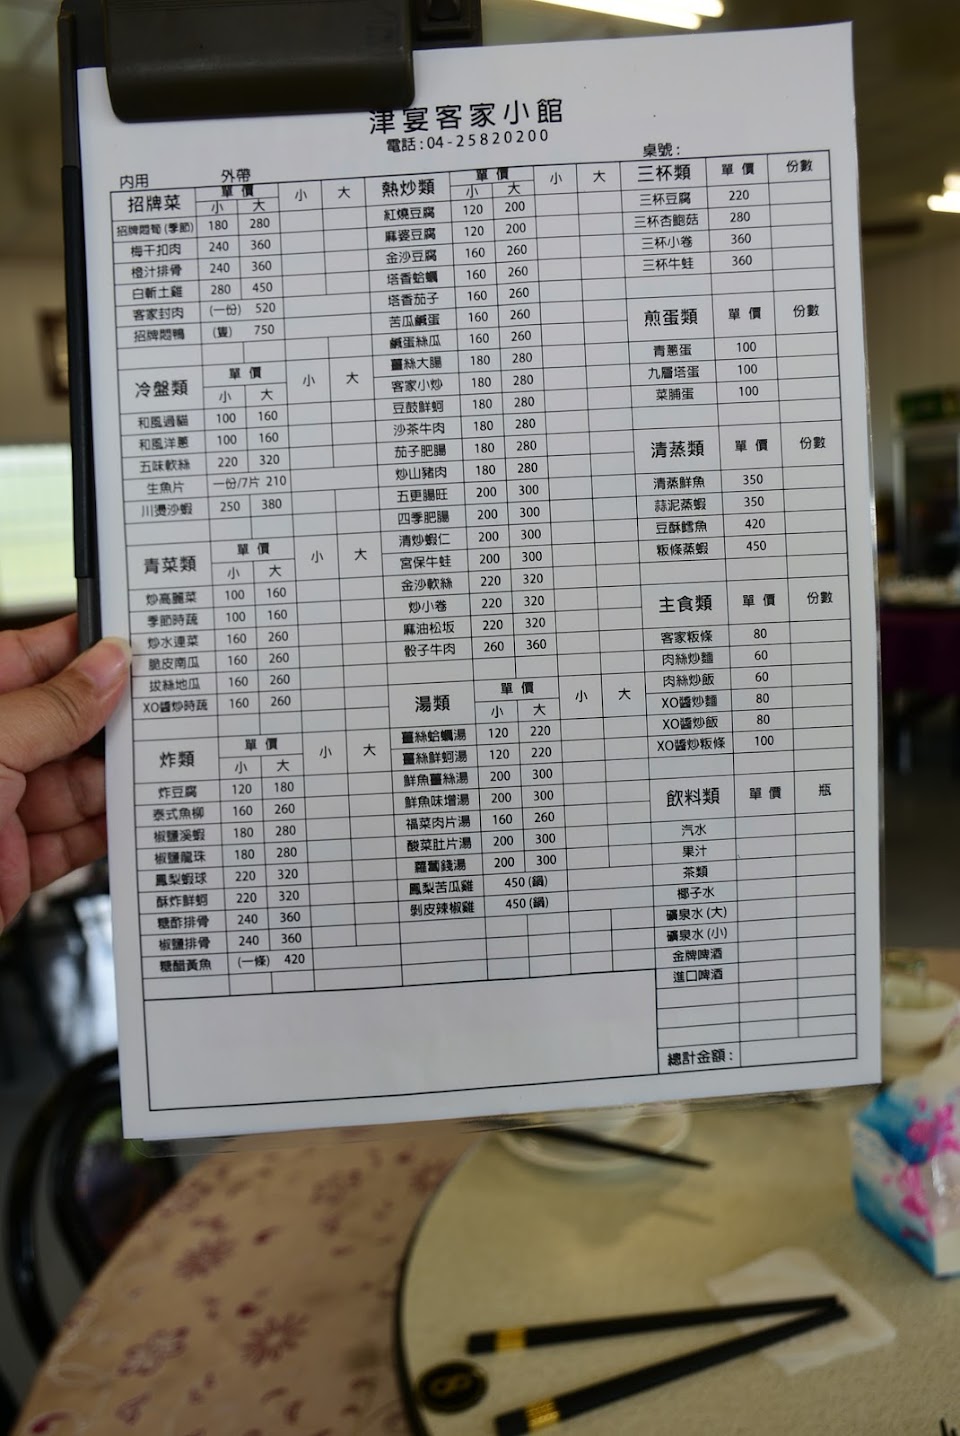 津宴客家小館
電話:04-25820200
內用 外帶 桌號:
招牌菜 單價 小 大 小 大
招牌悶筍(季節) 180 280
梅干扣肉 240 360
橙汁排骨 240 360
白斬土雞 280 450
客家封肉 (一份) 520
招牌悶鴨 (隻) 750
冷盤類 單價 小 大 小 大
和風過貓 100 160
和風洋蔥 100 160
五味軟絲 220 320
生魚片 一份/7片 210
川燙沙蝦 250 380
青菜類 單價 小 大 小 大
炒高麗菜 100 160
季節時蔬 100 160
炒水連菜 160 260
脆皮南瓜 160 260
拔絲地瓜 160 260
XO醬炒時蔬 160 260
炸類 單價 小 大 小 大
炸豆腐 120 180
泰式魚柳 160 260
椒鹽溪蝦 180 280
椒鹽龍珠 180 280
鳳梨蝦球 220 320
酥炸鮮蚵 220 320
糖酢排骨 240 360
椒鹽排骨 240 360
糖醋黃魚 (一條) 420
熱炒類 單價 小 大 小 大
紅燒豆腐 120 200
麻婆豆腐 120 200
金沙豆腐 160 260
塔香蛤蠣 160 260
塔香茄子 160 260
苦瓜鹹蛋 160 260
鹹蛋絲瓜 160 260
薑絲大腸 180 280
客家小炒 180 280
豆鼓鮮蚵 180 280
沙茶牛肉 180 280
茄子肥腸 180 280
炒山豬肉 180 280
五更腸旺 200 300
四季肥腸 200 300
清炒蝦仁 200 300
宮保牛蛙 200 300
金沙軟絲 220 320
炒小卷 220 320
麻油松坂 220 320
骰子牛肉 260 360
湯類 單價 小 大 小 大
薑絲蛤蠣湯 120 220
薑絲鮮蚵湯 120 220
鮮魚薑絲湯 200 300
鮮魚味增湯 200 300
福菜肉片湯 160 260
酸菜肚片湯 200 300
蘿蔔錢湯 200 300
鳳梨苦瓜雞 450(鍋)
剝皮辣椒雞 450(鍋)
三杯類 單價 份數
三杯豆腐 220
三杯杏鮑菇 280
三杯小卷 360
三杯牛蛙 360
煎蛋類 單價 份數
青蔥蛋 100
九層塔蛋 100
菜脯蛋 100
清蒸類 單價 份數
清蒸鮮魚 350
蒜泥蒸蝦 350
豆酥鱈魚 420
粄條蒸蝦 450
主食類 單價 份數
客家粄條 80
肉絲炒麵 60
肉絲炒飯 60
XO醬炒麵 80
XO醬炒飯 80
XO醬炒粄條 100
飲料類 單價 瓶
汽水
果汁
茶類
椰子水
礦泉水(大)
礦泉水(小)
金牌啤酒
進口啤酒
總計金額: